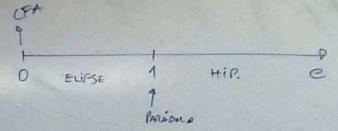 CFA
0 ELIPSE 1 HIP. e
PARÁBOLA